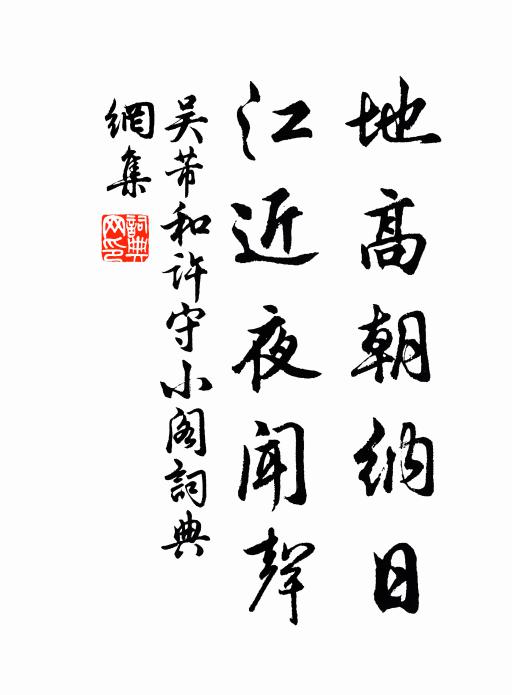 地高朝納日
江近夜聞聲
吴芾和许守小阁詞典
網集
詞典
网印